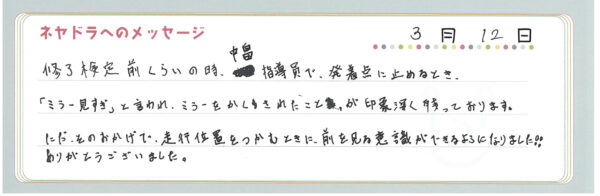 ネヤドラへのメッセージ
3月12日
中畠
修了検定前くらいの時、指導員で、発着点に止めるとき、
「ミラー見すぎ」と言われ、ミラーをかくされたこと が印象深く残っております。
ただ、そのおかげで、走行位置をつかむときに、前を見る意識ができるようになりました!!
ありがとうございました。